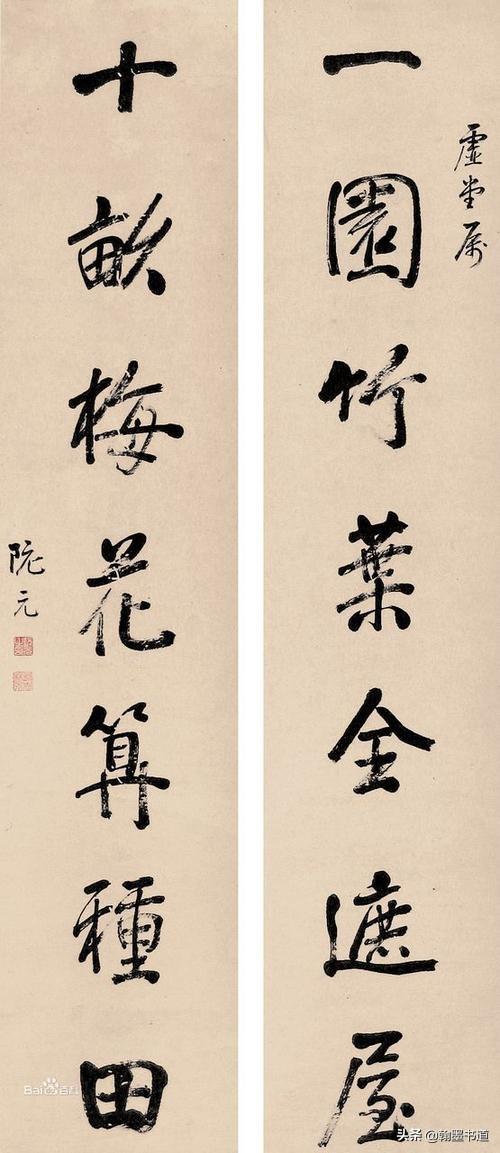 虚堂属
一園竹葉全遮屋
十畝梅花算種田
阮元
Bai百科
头条 @翰墨书道